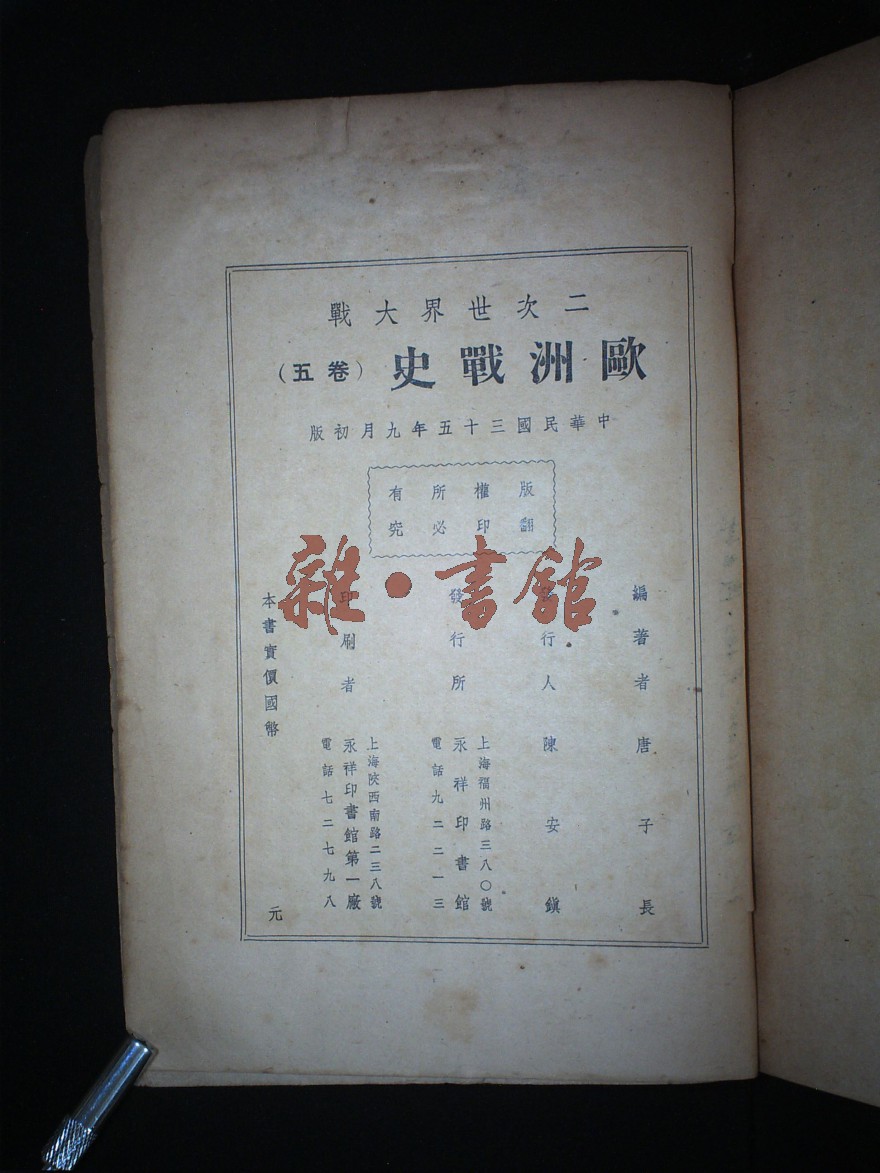 二次世界大戰
歐洲戰史（卷五）
中華民國三十五年九月初版
版權所有
翻印必究
編著者 唐子長
發行人 陳安鎮
發行所
上海福州路三八〇號
永祥印書館
電話九二二一三
印刷者
上海陝西南路二三八號
永祥印書館第一廠
電話七二七九八
本書實價國幣 元
雜·書館